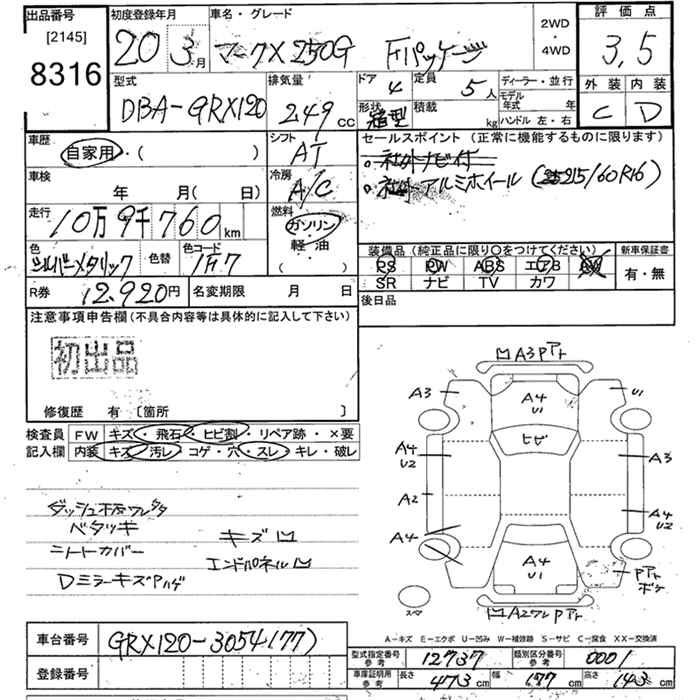 出品番号
[2145]
8316
初度登録年月
20 3月
車名・グレード
マークX 250G Fパッケージ
2WD
・
4WD
評価点
3,5
型式
DBA-GRX120
排気量
249cc
ドア 4
定員 5人
形状 箱型
積載 kg
ディーラー・並行
モデル
年式 年
ハンドル 左・右
外装 内装
C D
車歴
自家用・( )
シフト
AT
セールスポイント (正常に機能するものに限ります)
。社外ナビ付
。社外アルミホイール (215/60R16)
車検
年 月( 日)
冷房
A/C
走行
10万9千760km
燃料
ガソリン
・
軽油
( )
色
シルバーメタリック
色替
色コード
1F7
装備品(純正品に限り○をつけてください)
PS PW ABS エアB AW
SR ナビ TV カワ
新車保証書
有・無
R券 12,920円
名変期限 月 日
後日品
注意事項申告欄(不具合内容等は具体的に記入して下さい)
初出品
修復歴 有 [箇所 ]
検査員
記入欄
FW キズ・飛石・ヒビ割・リペア跡・×要
内装 キズ・汚レ・コゲ・穴・スレ・キレ・破レ
ベタツキ
キズ凹
エンドパネル凹
Dミラーキズ
A3
A4
U1
U1
ヒビ
A4
U2
A3
A2
A4
U2
A4
A4
U1
スペア
A-キズ E-エクボ U-凹み W-補修跡 S-サビ C-腐食 XX-交換済
車台番号 GRX120-3054177)
登録番号
型式指定番号
参考
12737
類別区分番号
参考
0001
車庫証明用
参考
長さ 473cm 幅 177cm 高さ 143cm